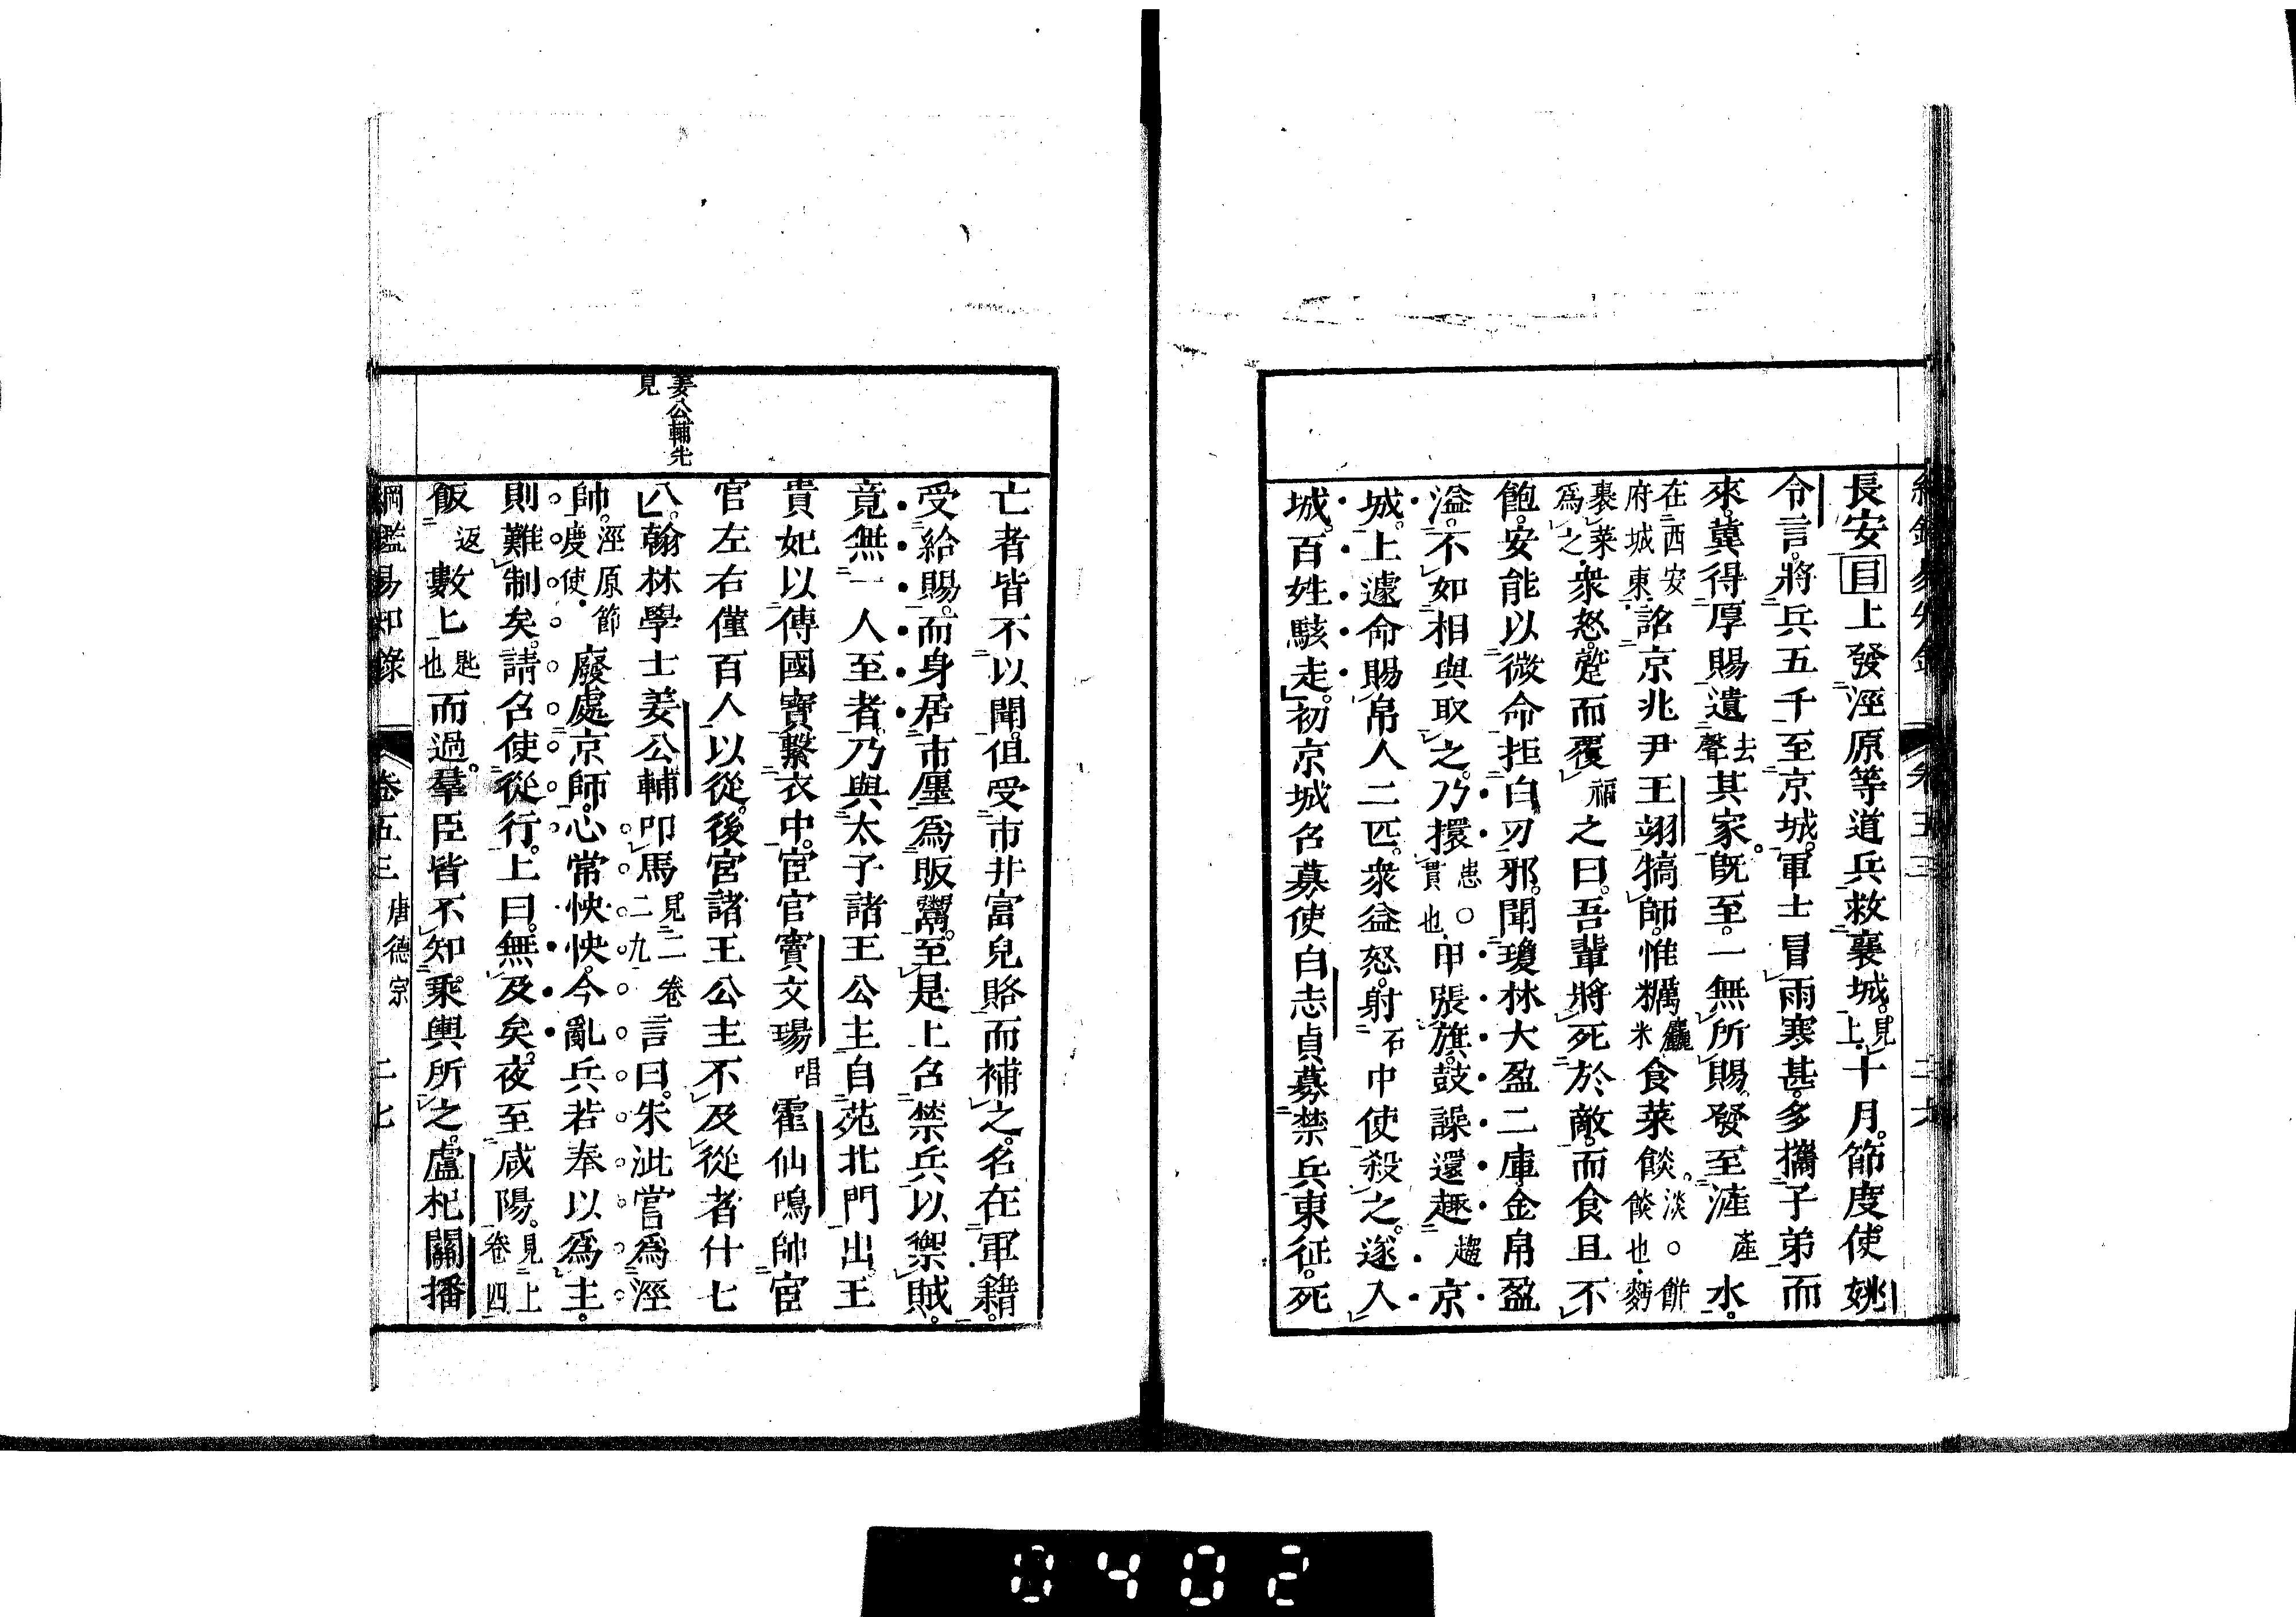 長安目上發涇原等道兵救襄城見上十月節度使姚
令言將兵五千至京城軍士冒雨寒甚多攜子弟而
來冀得厚賜遺去聲其家既至一無所賜發至滻產水
在西安府城東詔京兆尹王翃犒師惟糲麤米食菜餤淡○餅餤也麪
裹菜爲之衆怒蹵而覆福之曰吾輩將死於敵而食且不
飽安能以微命拒白刃邪聞瓊林大盈二庫金帛盈
溢不如相與取之乃擐患○貫也甲張旗鼓譟還趣趨京
城上遽命賜帛人二匹衆益怒射石中使殺之遂入
城百姓駭走初京城召募使白志貞募禁兵東征死
亡者皆不以聞但受市井富兒賂而補之名在軍籍
受給賜而身居市廛爲販鬻至是上召禁兵以禦賊
竟無一人至者乃與太子諸王公主自苑北門出王
貴妃以傳國寶繫衣中宦官竇文瑒唱霍仙鳴帥宦
官左右僅百人以從後宮諸王公主不及從者什七
八翰林學士姜公輔叩馬見二卷二九言曰朱泚嘗爲涇
帥涇原節度使廢處京師心常怏怏今亂兵若奉以爲主
則難制矣請召使從行上曰無及矣夜至咸陽見上卷四
飯返數匕匙也而過羣臣皆不知乘輿所之盧杞關播
姜公輔先
見
綱鑑易知錄 卷五三 唐德宗 二七